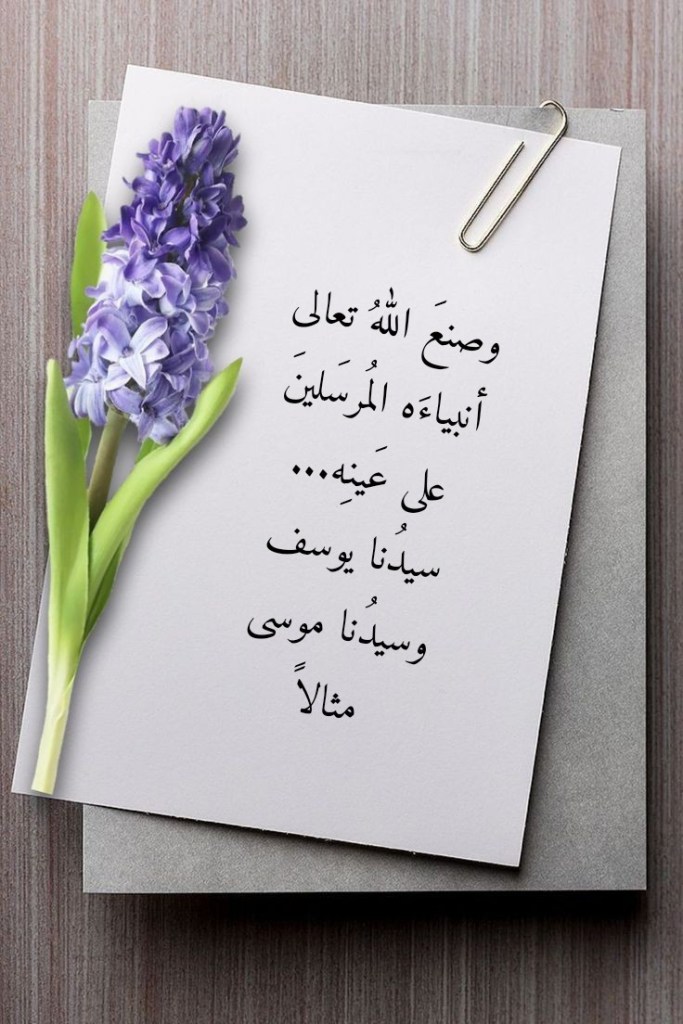 وصنعَ اللهُ تعالى
أنبياءَه المُرسَلينَ
على عَينِه...
سيدُنا يوسف
وسيدُنا موسى
مثالاً